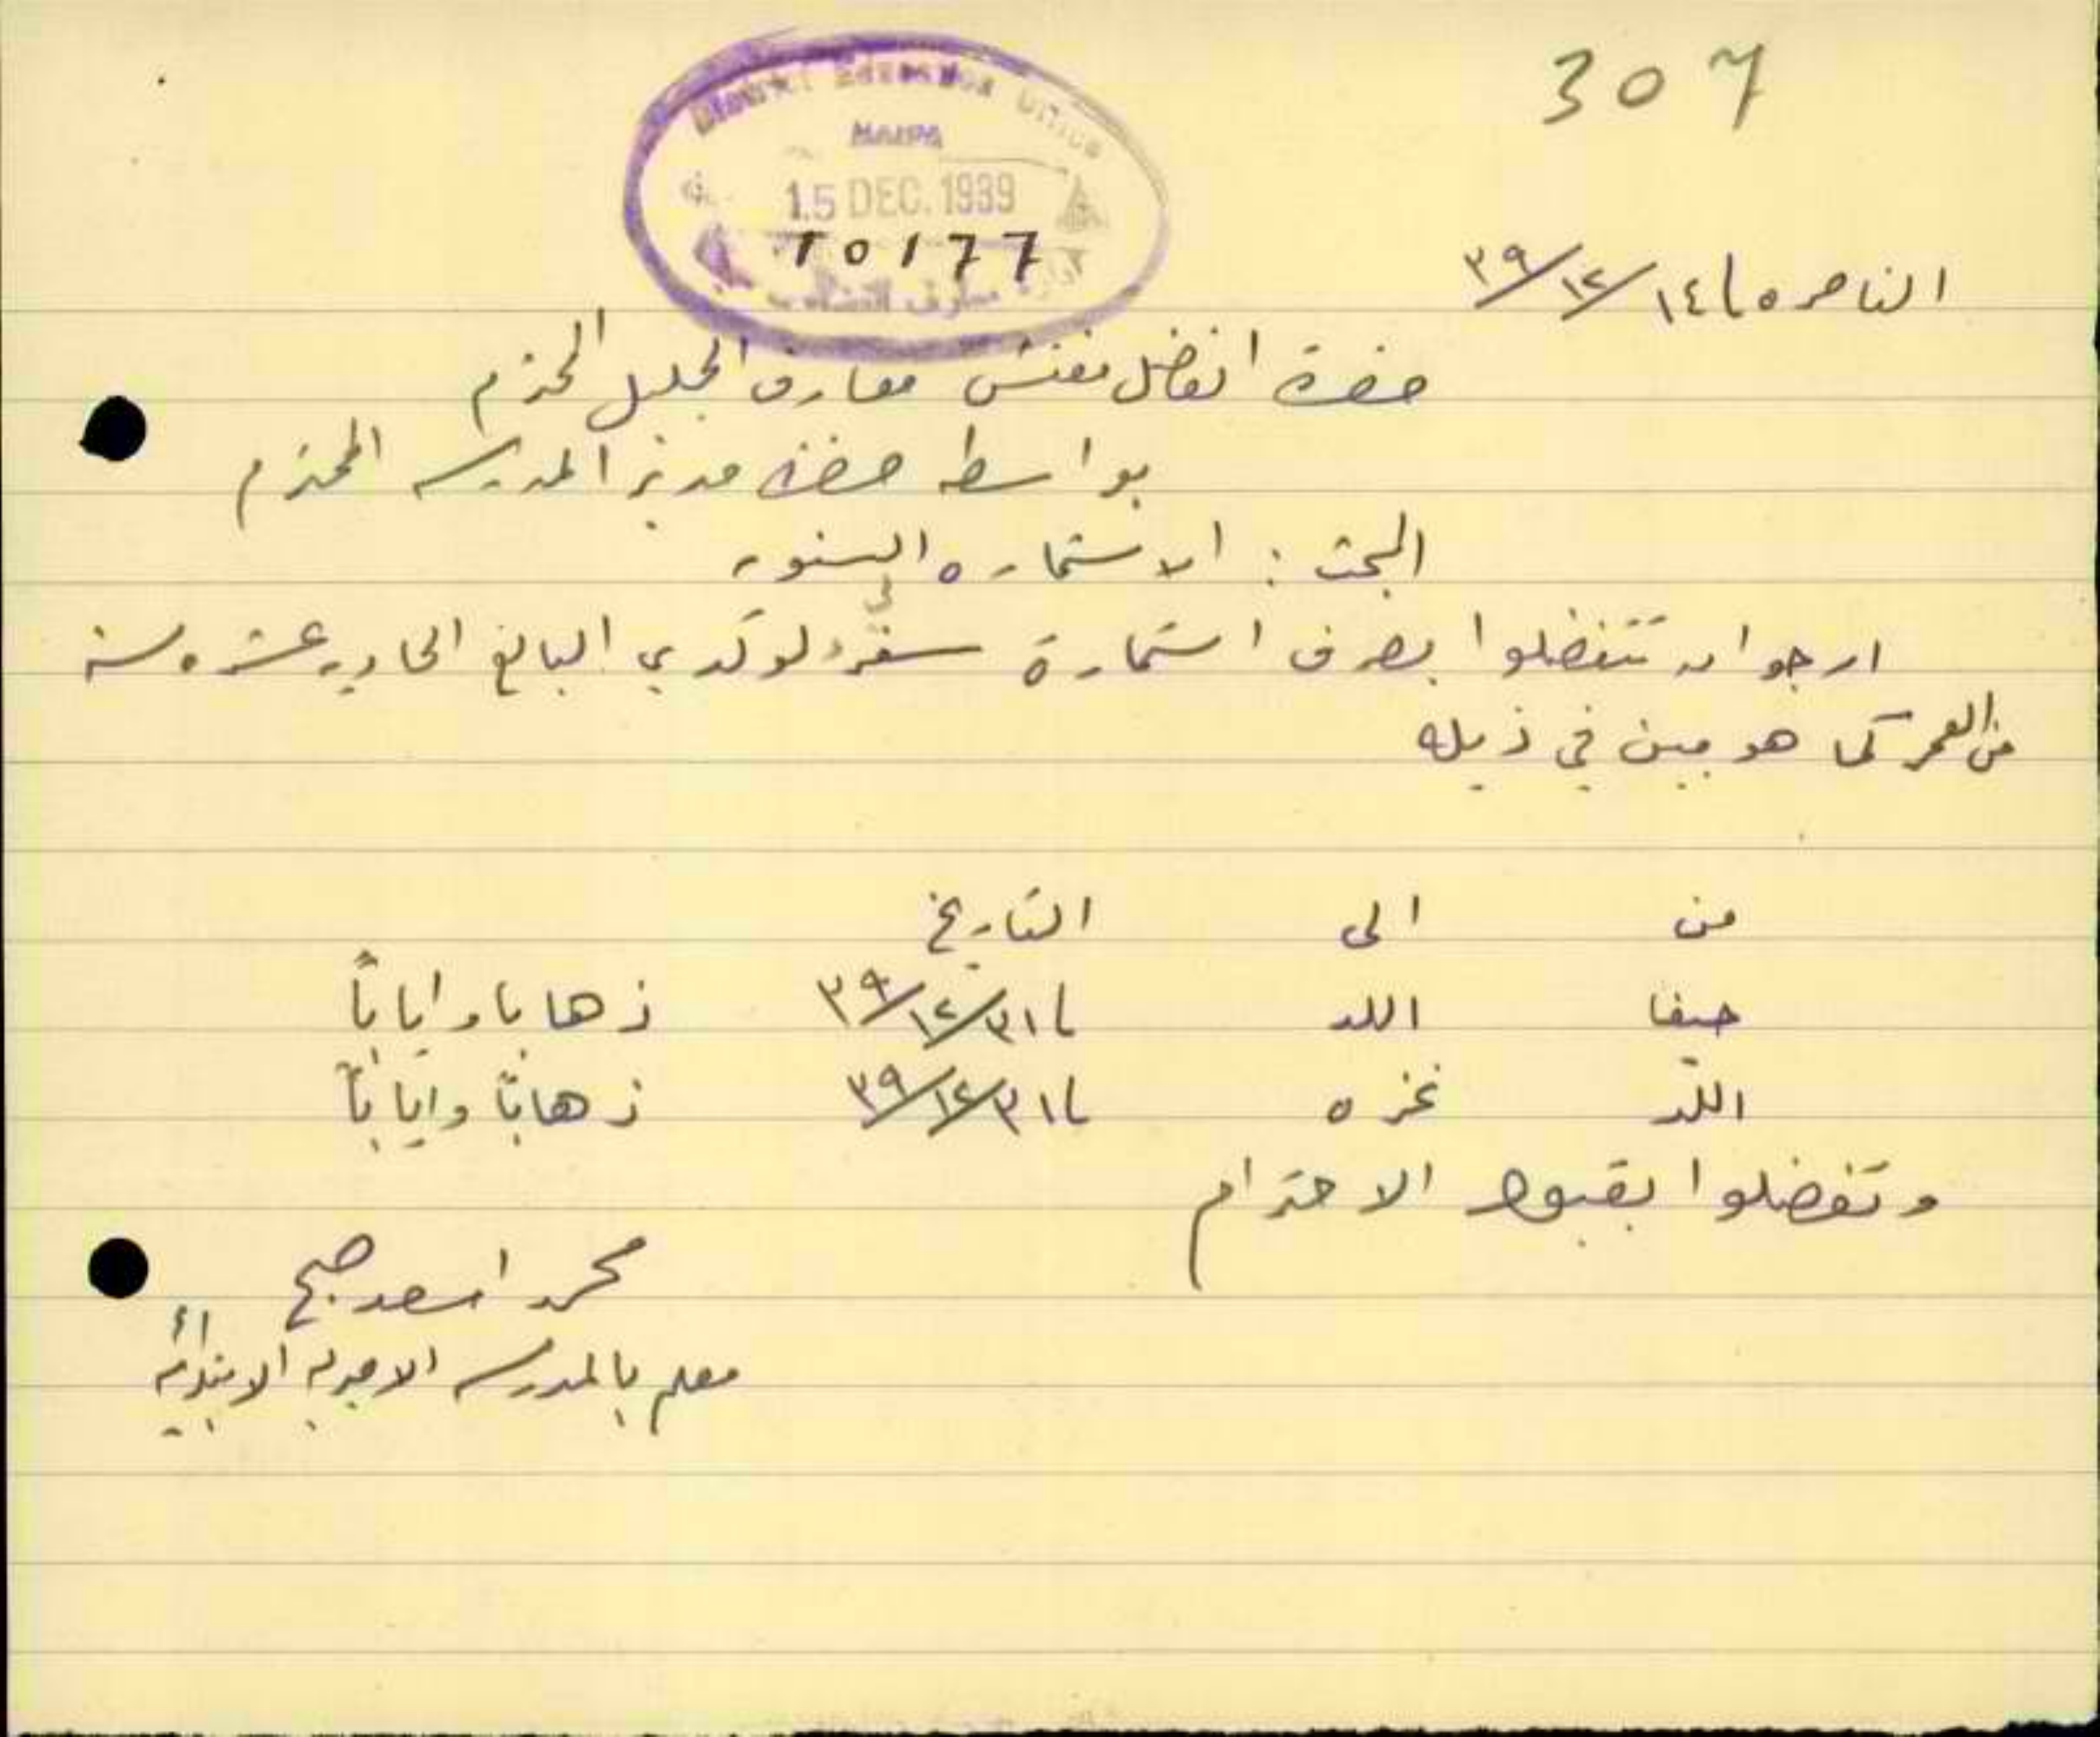 307
District Education Office
HAIFA
15 DEC. 1939
10177
معارف
الناصره في ١٤/١٢/٣٩
حضرة الفاضل مفتش معارف الجليل المحترم
بواسطة حضرة مدير المدرسه المحترم
البحث : الاستماره السنويه
ارجو ان تتفضلوا بصرف استمارة سفر لولدي البالغ الحاديه عشره سنه
من العمر كما هو مبين في ذيله
من الى التاريخ
حيفا اللد في ٣١/١٢/٣٩ ذهابا واياباً
اللد غزه في ٣١/١٢/٣٩ ذهاباً واياباً
وتفضلوا بقبول الاحترام
محمد اسعد صبح
معلم بالمدرسه الاميريه الابتدائيه